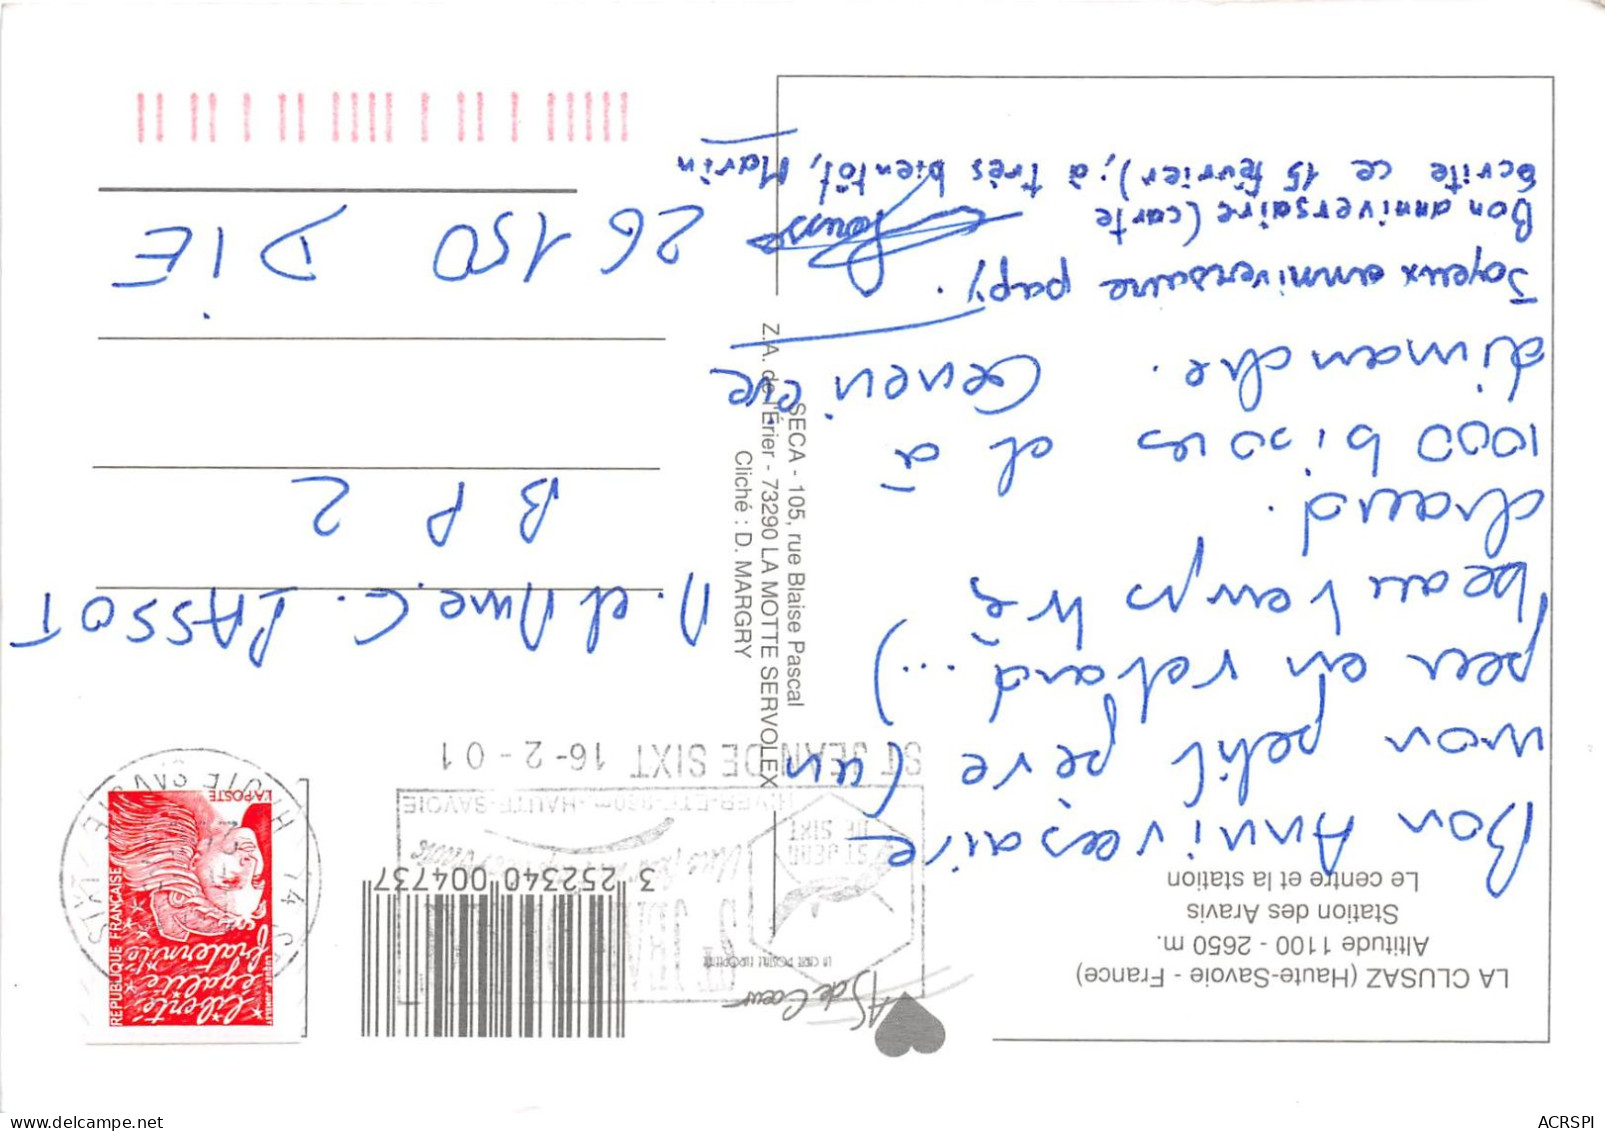 LA CLUSAZ (Haute-Savoie - France)
Altitude 1100 - 2650 m.
Station des Aravis
Le centre et la station
Bon Anniversaire
mon petit père (un
peu en retard...)
beau temps très
chaud.
1000 bisous et à
dimanche. Geneviève
Joyeux anniversaire papy.
Bon anniversaire (carte
écrite ce 15 février); à très bientôt, Marin
AS de Cœur
LA CARTE POSTALE EUROPÉENNE
3 252340 004737
ST JEAN DE SIXT 16-2-01
HIVER-ETE-960m-HAUTE-SAVOIE
ST JEAN
DE SIXT
SECA - 105, rue Blaise Pascal
Z.A. de l'Érier - 73290 LA MOTTE SERVOLEX
Cliché : D. MARGRY
REPUBLIQUE FRANÇAISE
LA POSTE
Liberté
égalité
fraternité
M. et Mme C. PASSOT
B P 2
26 150 DIE
ACRSPI